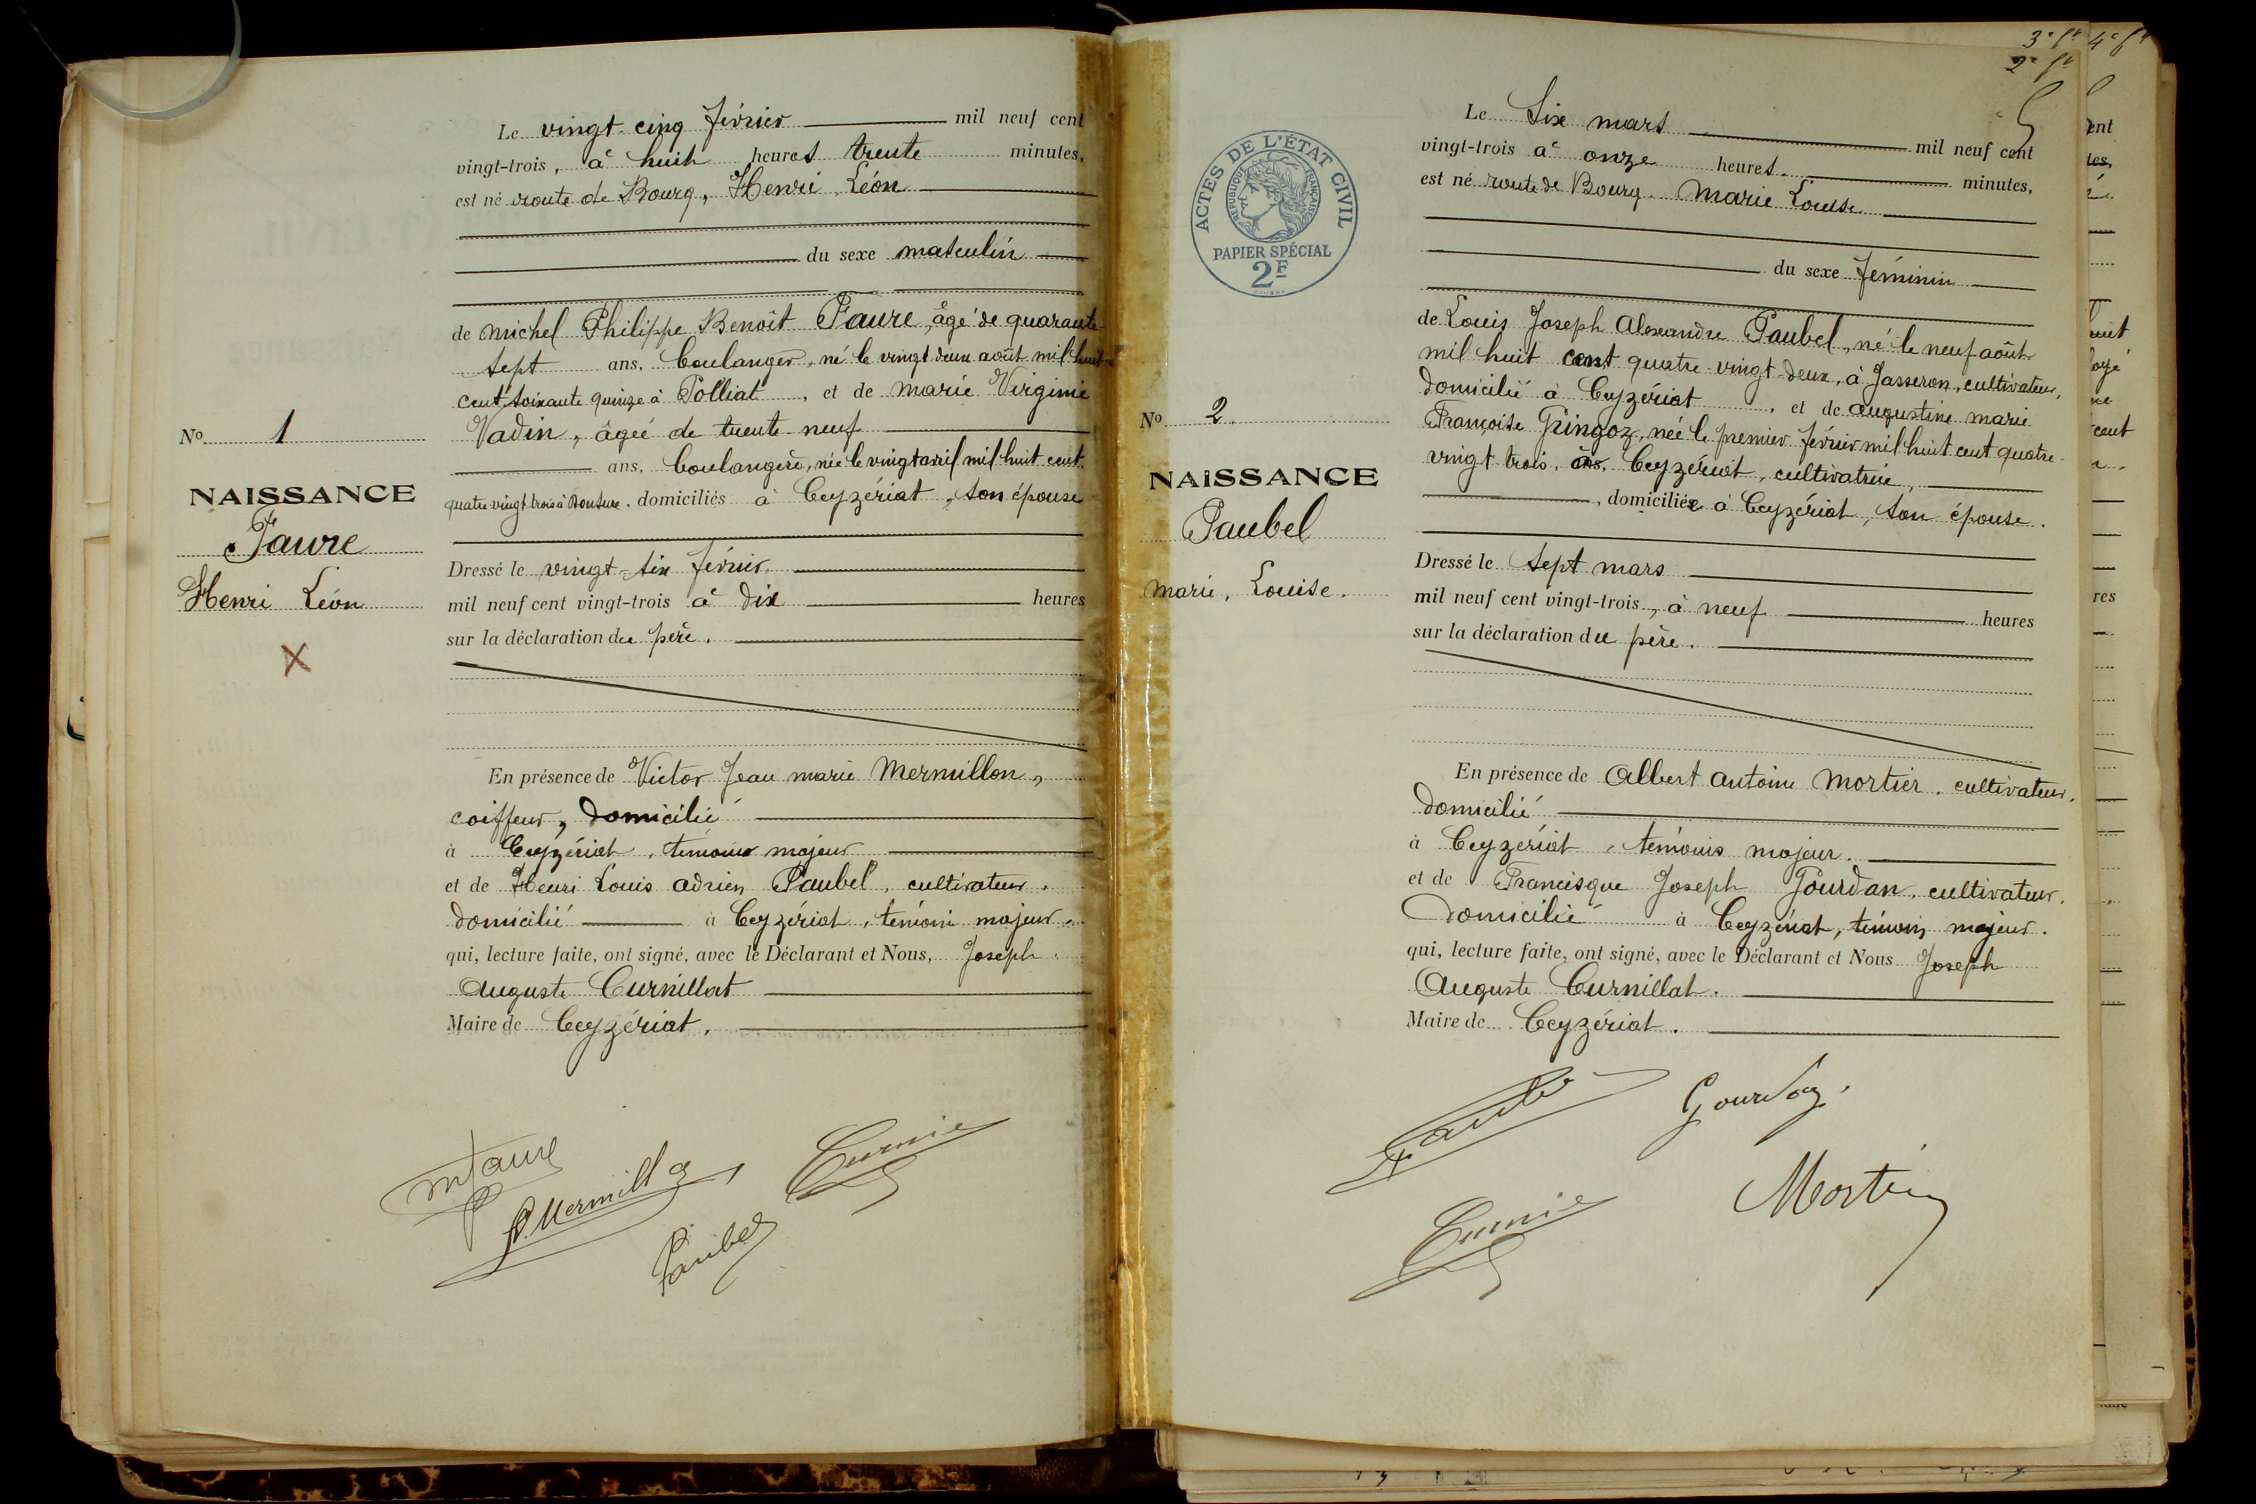 Le vingt-cinq février mil neuf cent
vingt-trois, à huit heures trente minutes,
est né route de Bourg, Henri Léon
du sexe masculin
de Michel Philippe Benoît Faure, âgé de quarante-
sept ans, boulanger, né le vingt deux août mil huit
cent soixante quinze à Polliat, et de Marie Virginie
Vadin, âgée de trente-neuf
ans, boulangère, née le vingt avril mil huit cent
quatre vingt trois à, domiciliés à Ceyzériat, son épouse
Nº 1
NAISSANCE
Faure
Henri Léon
X
Dressé le vingt-six février
mil neuf cent vingt-trois à dix heures
sur la déclaration du père.
En présence de Victor Jean Marie Mermillon,
coiffeur, domicilié
à Ceyzériat, témoin majeur
et de Henri Louis Adrien Paubel, cultivateur,
domicilié à Ceyzériat, témoin majeur.
qui, lecture faite, ont signé, avec le Déclarant et Nous, Joseph
Auguste Curnillat
Maire de Ceyzériat.
mfaure
Mermillo
Paubel
Curni
3e ft 4e ft
2e ft
5
ACTES DE L'ÉTAT CIVIL
RÉPUBLIQUE FRANÇAISE
PAPIER SPÉCIAL
2F
Le Six mars mil neuf cent
vingt-trois à onze heures. minutes,
est né route de Bourg. Marie Louise
du sexe féminin
de Louis Joseph Alexandre Paubel, né le neuf août
mil huit cent quatre-vingt-deux, à Jasseron, cultivateur,
domicilié à Ceyzériat, et de Augustine Marie
Françoise Gringoz, née le premier février mil huit cent quatre-
vingt trois, ans, Ceyzériat, cultivatrice,
, domiciliée à Ceyzériat, son épouse.
Nº 2.
NAISSANCE
Paubel
Marie, Louise.
Dressé le sept mars
mil neuf cent vingt-trois, à neuf heures
sur la déclaration du père.
En présence de Albert Antoine Mortier, cultivateur,
domicilié
à Ceyzériat, témoins majeur.
et de Francisque Joseph Gourdan, cultivateur,
domicilié à Ceyzériat, témoin majeur.
qui, lecture faite, ont signé, avec le Déclarant et Nous Joseph
Auguste Curnillat.
Maire de Ceyzériat.
Mortier